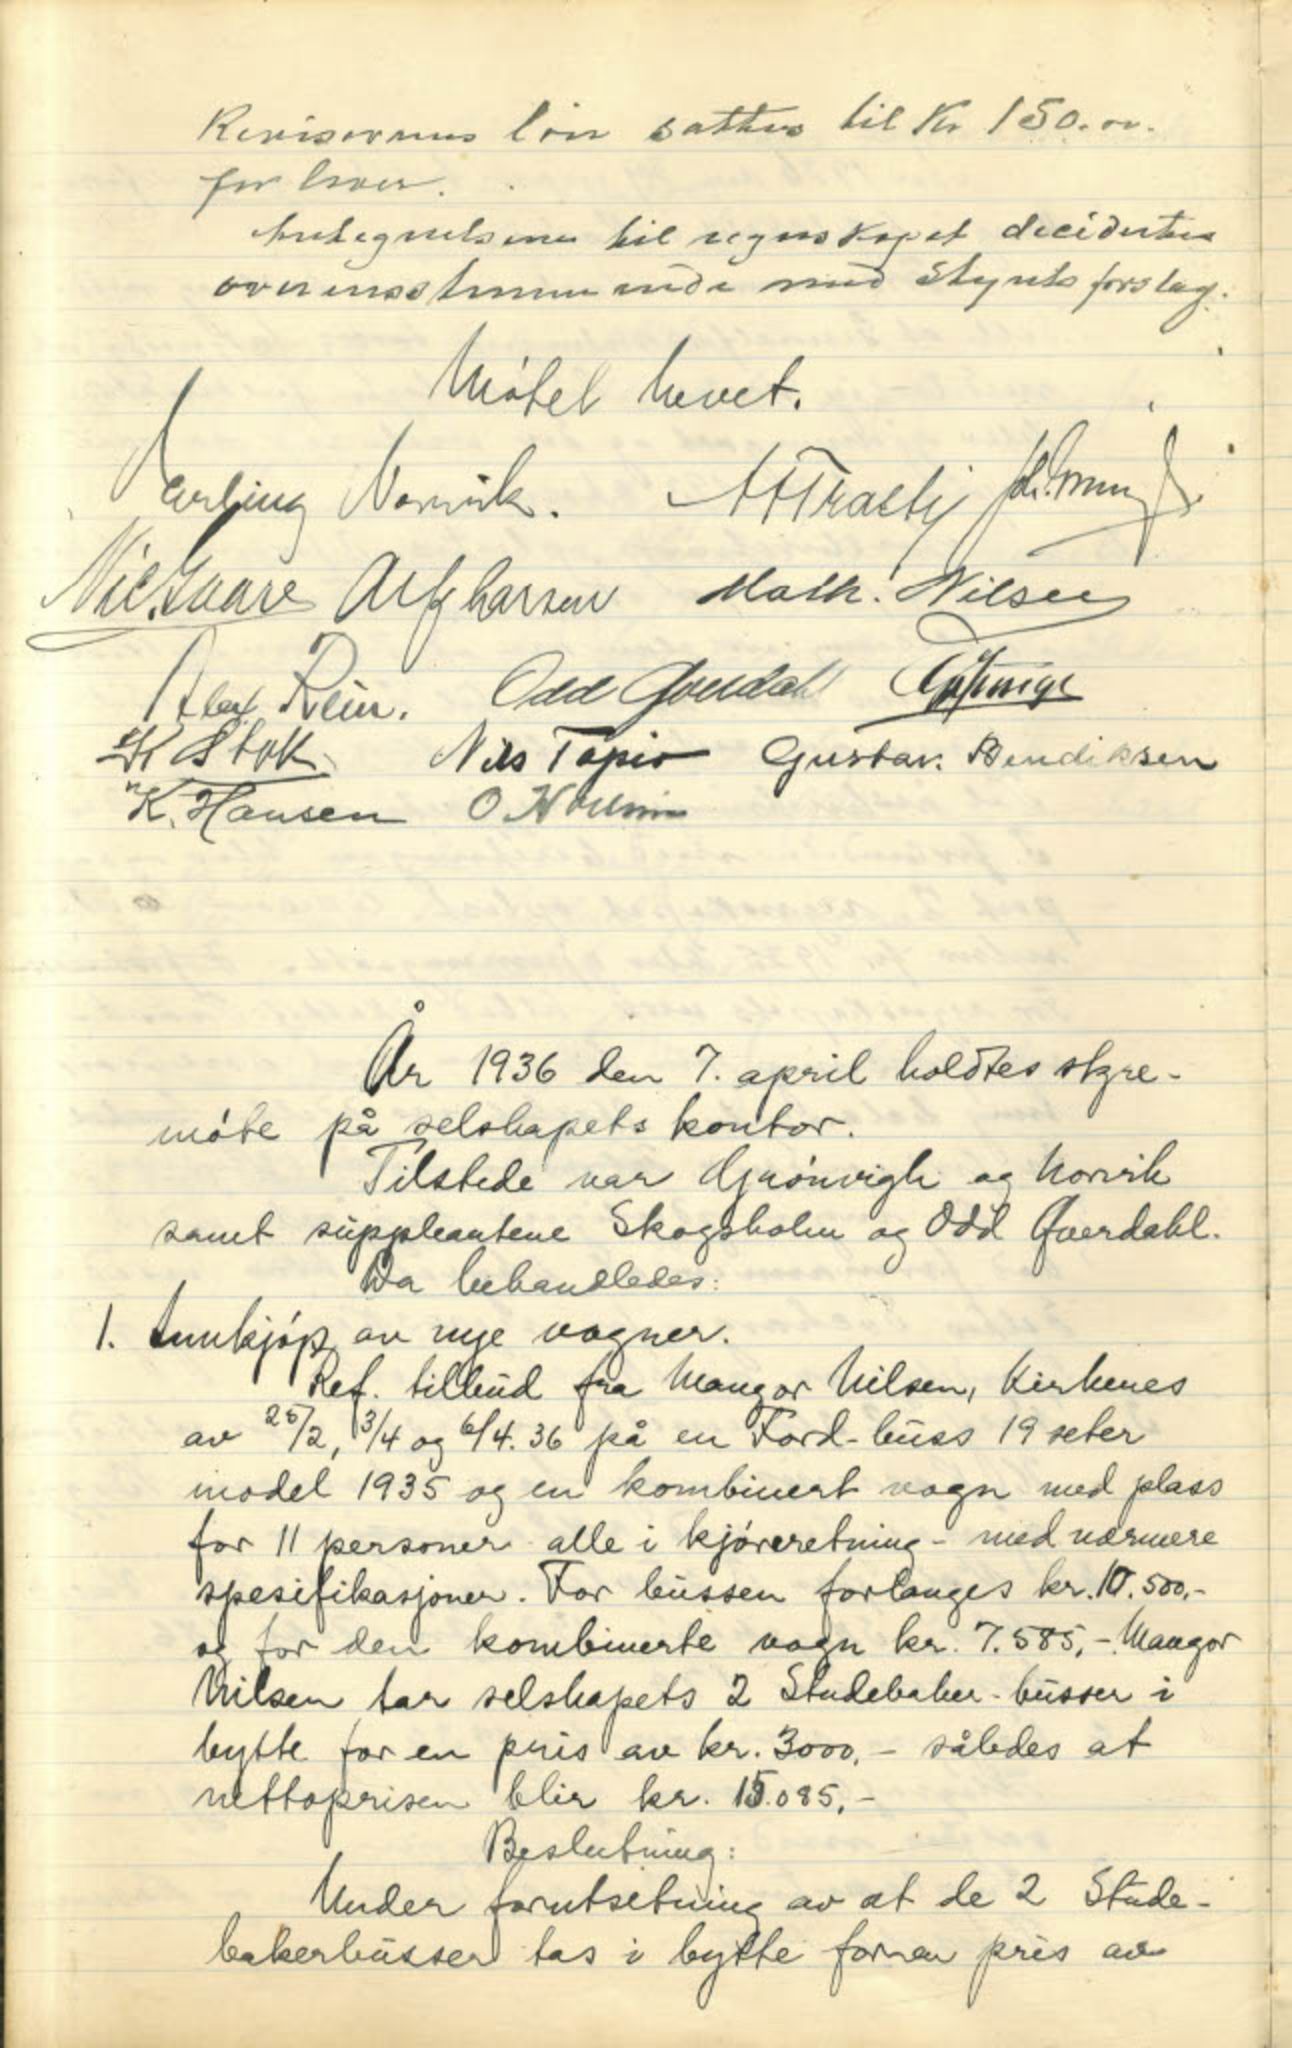 Revisorenes løn sattes til Kr 150.oo.
for hver.
Antegnelsene til regnskapet decidertes
overensstemmende med Styrets forslag.
Møtet hevet.
Erling Norvik.
Nic. Alf Larsen Math. Nilsen
Alex Rein. Odd Gverdahl
K Stok Nils Tapio Gustav. Bendiksen
K. Hansen
År 1936 den 7. april holdtes styre-
møte på selskapets kontor.
Tilstede var Grønvigh og Norvik
samt suppleantene Skogsholm og Odd Gverdahl.
Da behandledes:
1. Innkjøp av nye vogner.
Ref. tilbud fra Mangor Nilsen, Kirkenes
av 25/2, 3/4 og 6/4. 36 på en Ford-buss 19 seter
model 1935 og en kombinert vogn med plass
for 11 personer alle i kjøreretning - med nærmere
spesifikasjoner. For bussen forlanges kr. 10.500,-
og for den kombinerte vogn kr. 7.585,-. Mangor
Nilsen tar selskapets 2 Studebaker-busser i
bytte for en pris av kr. 3000,- således at
nettoprisen blir kr. 15.085,-
Beslutning:
Under forutsetning av at de 2 Stude-
bakerbusser tas i bytte for en pris av